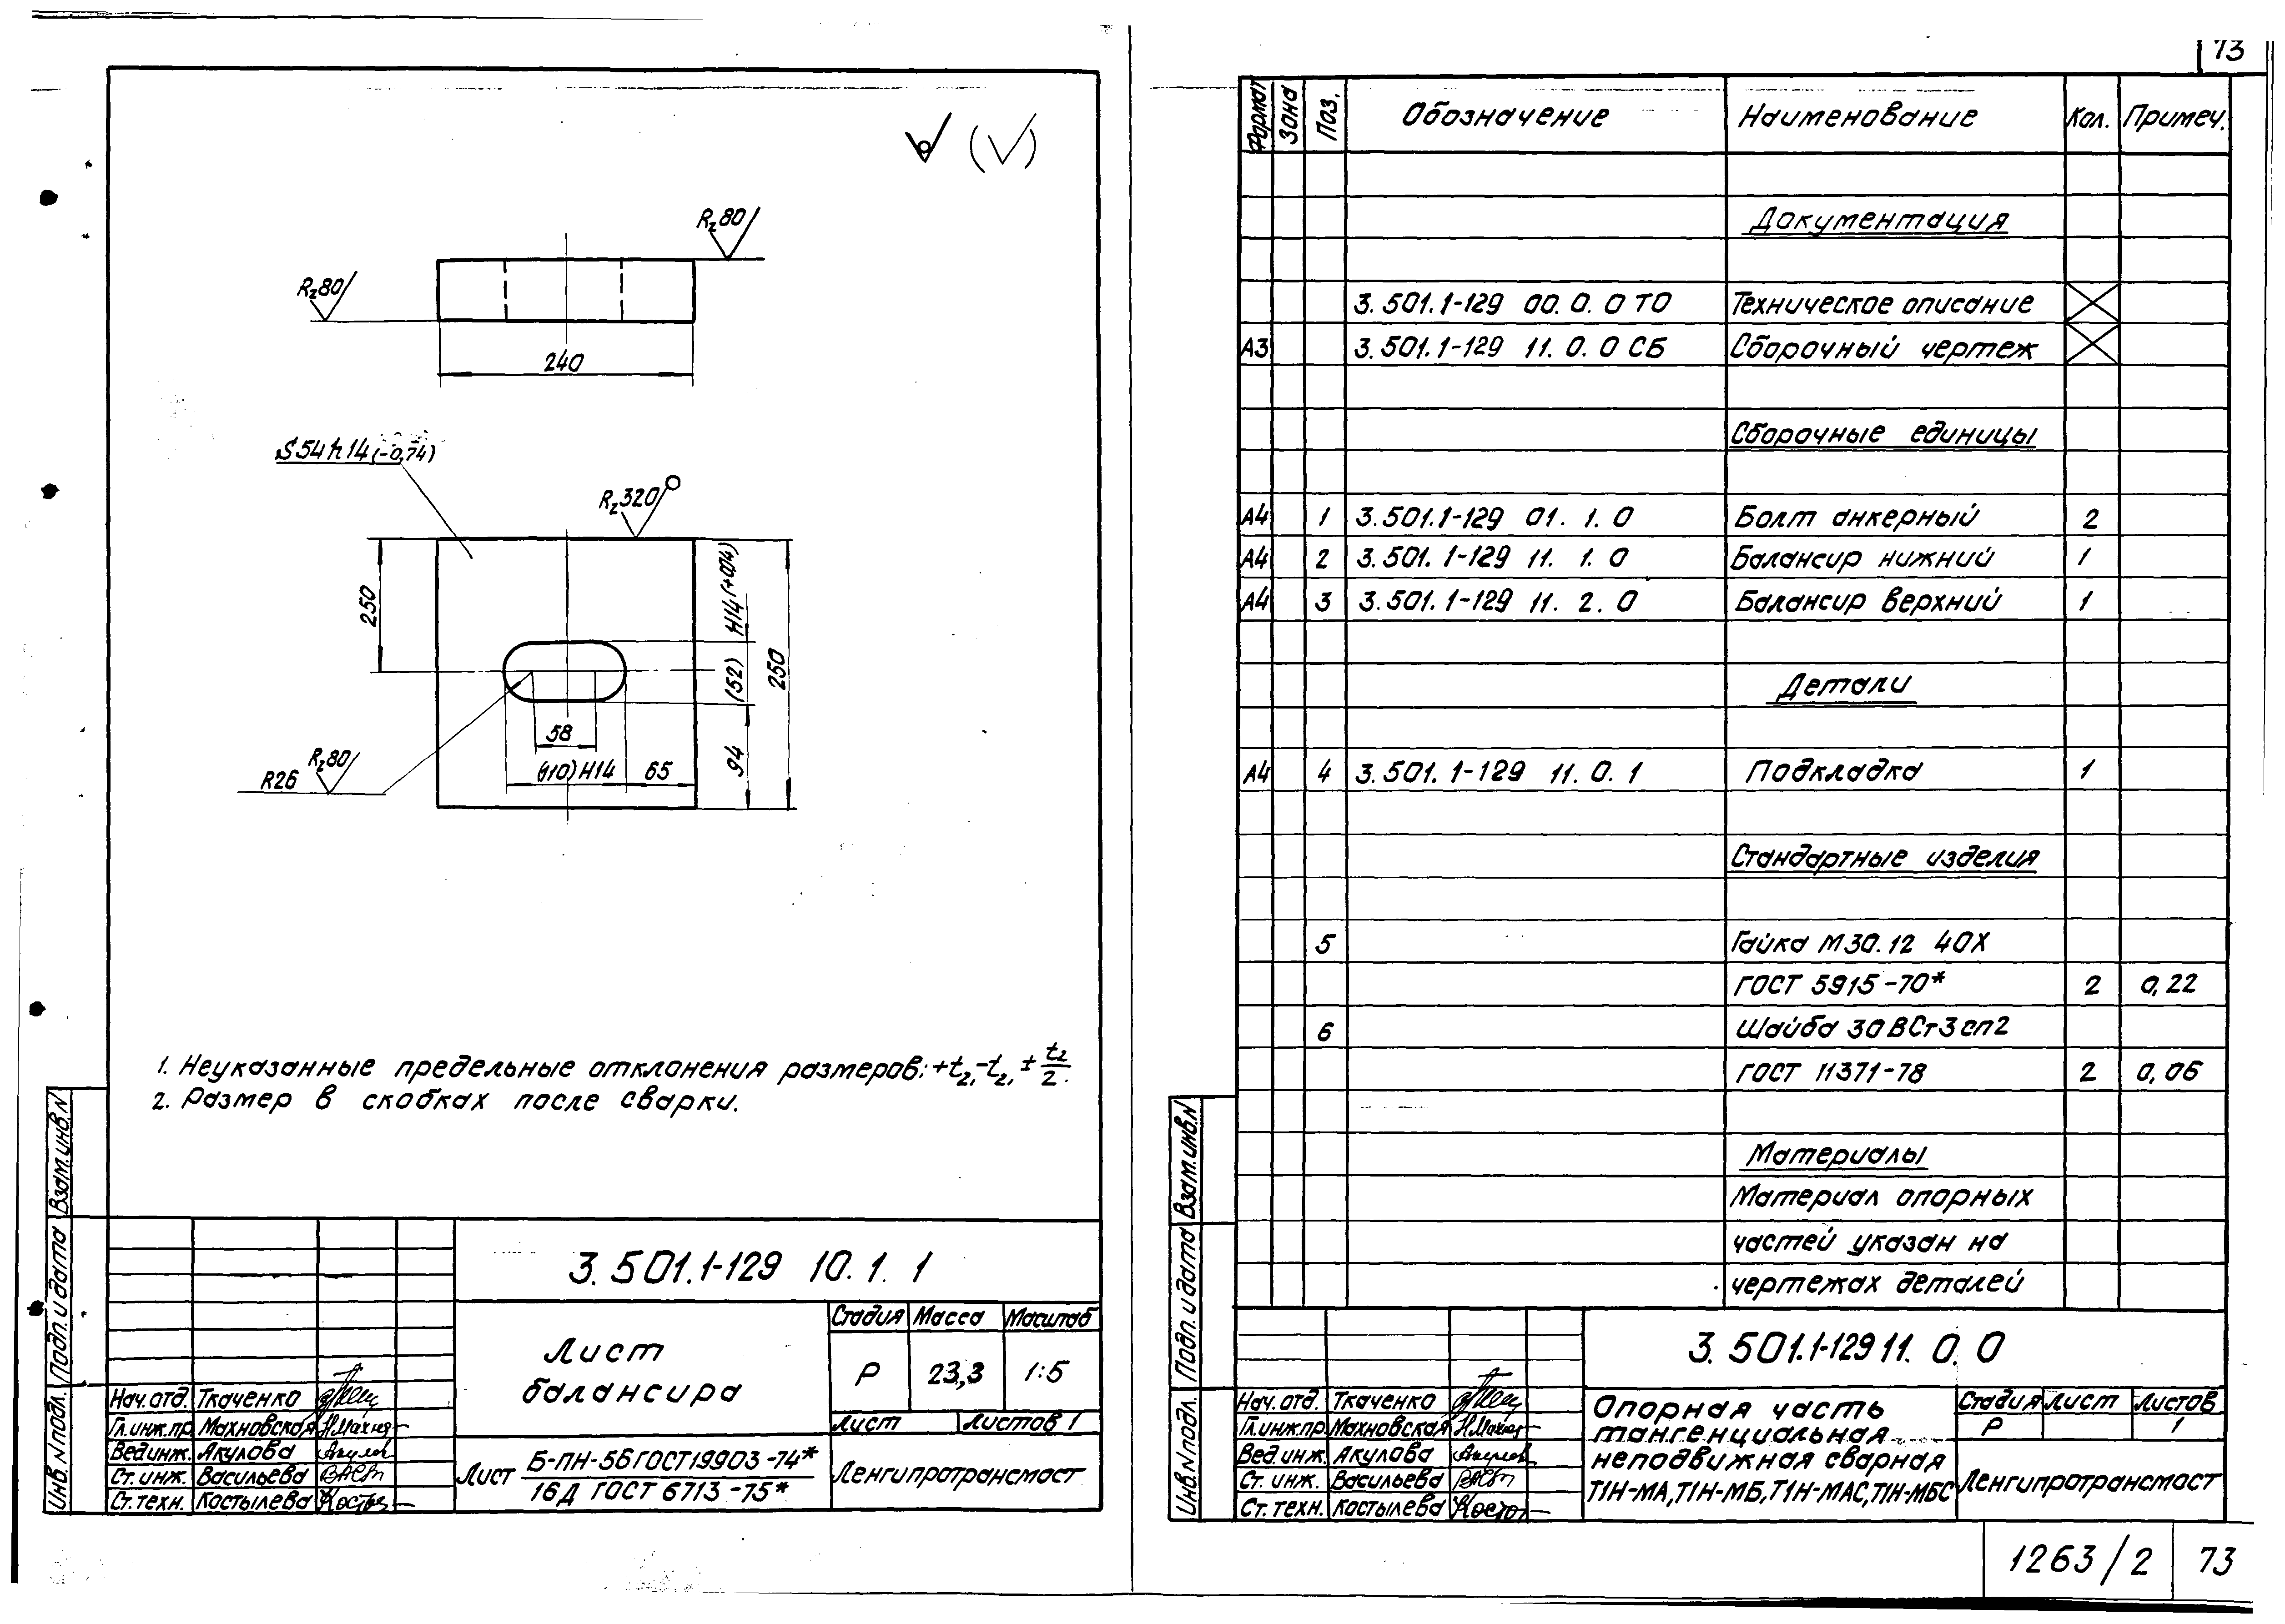 73
Rz80
Rz80
240
S54h14(-0,74)
Rz320
250
H14(+0,74)
(52)
250
58
(110)H14
65
94
R26
Rz80
1. Неуказанные предельные отклонения размеров: +t2, -t2, ± t2/2.
2. Размер в скобках после сварки.
Взам.инв.N
Подп. и дата
Инв.N подл.
3.501.1-129 10.1.1
Лист
балансира
Стадия Масса Масштаб
Р 23,3 1:5
Лист Листов 1
Нач.отд. Ткаченко
Гл.инж.пр. Махновская
Вед.инж. Акулова
Ст.инж. Васильева
Ст.техн. Костылева
Лист Б-ПН-56 ГОСТ 19903-74*
16Д ГОСТ 6713-75*
Ленгипротрансмост
Формат Зона Поз. Обозначение Наименование Кол. Примеч.
Документация
3.501.1-129 00.0.0 ТО Техническое описание
А3 3.501.1-129 11.0.0 СБ Сборочный чертеж
Сборочные единицы
А4 1 3.501.1-129 01.1.0 Болт анкерный 2
А4 2 3.501.1-129 11.1.0 Балансир нижний 1
А4 3 3.501.1-129 11.2.0 Балансир верхний 1
Детали
А4 4 3.501.1-129 11.0.1 Подкладка 1
Стандартные изделия
5 Гайка М30.12 40Х
ГОСТ 5915-70* 2 0,22
6 Шайба 30 ВСт3сп2
ГОСТ 11371-78 2 0,06
Материалы
Материал опорных
частей указан на
чертежах деталей
Взам.инв.N
Подп. и дата
Инв.N подл.
3.501.1-129 11.0.0
Нач.отд. Ткаченко
Гл.инж.пр. Махновская
Вед.инж. Акулова
Ст.инж. Васильева
Ст.техн. Костылева
Опорная часть
тангенциальная
неподвижная сварная
Т1Н-МА, Т1Н-МБ, Т1Н-МАС, Т1Н-МБС
Стадия Лист Листов
Р 1
Ленгипротрансмост
1263/2 73